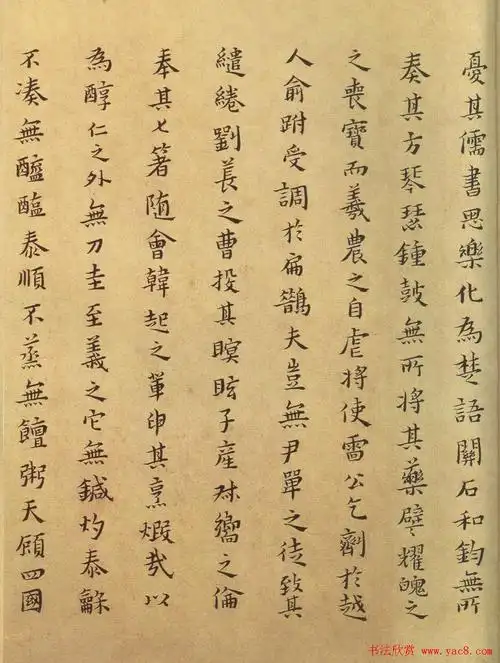 憂其儒書思樂化為楚語關石和鈞無所
奏其方琴瑟鍾鼓無所將其藥躄耀魄之
之喪寶而羲農之自虐將使雷公乞劑於越
人俞跗受調於扁鵲夫豈無尹單之徒致其
繾綣劉長之曹投其瞑眩子產叔嚮之倫
奉其匕箸随會韓起之單申其烹煆哉以
為醇仁之外無刀圭至義之它無鍼灼泰龢
不凑無醯醢泰順不蒸無饘粥天顧四國
书法欣赏 www.yac8.com